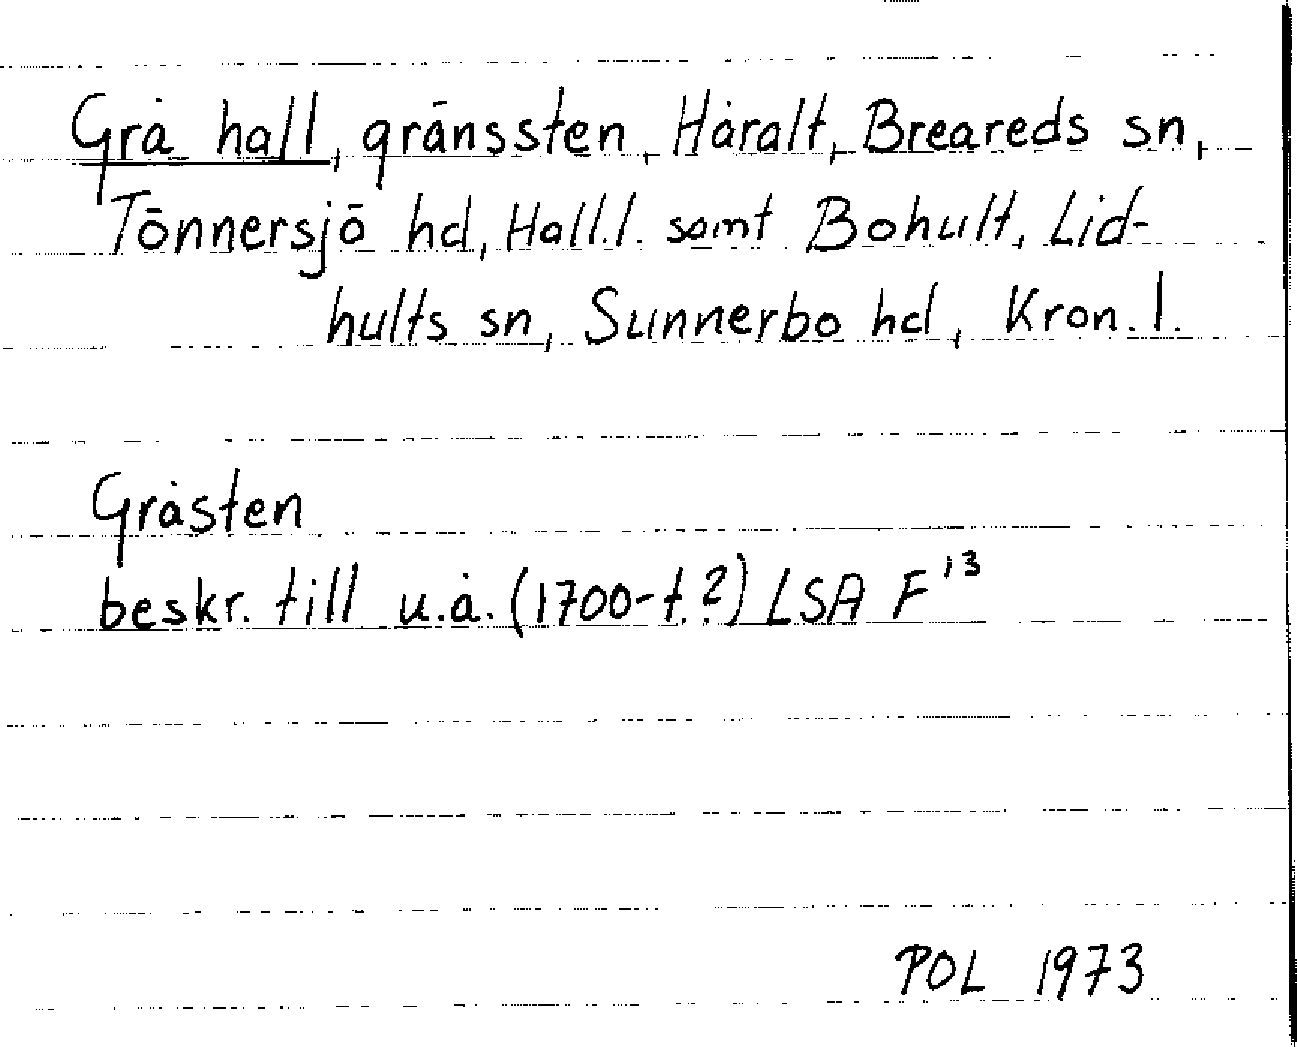 Grå hall, gränssten, Håralt, Breareds sn,
Tönnersjö hd, Hall.l. samt Bohult, Lid-
hults sn, Sunnerbo hd, Kron. l.
Gråsten
beskr. till u.å. (1700-t.?) LSA F¹³
POL 1973